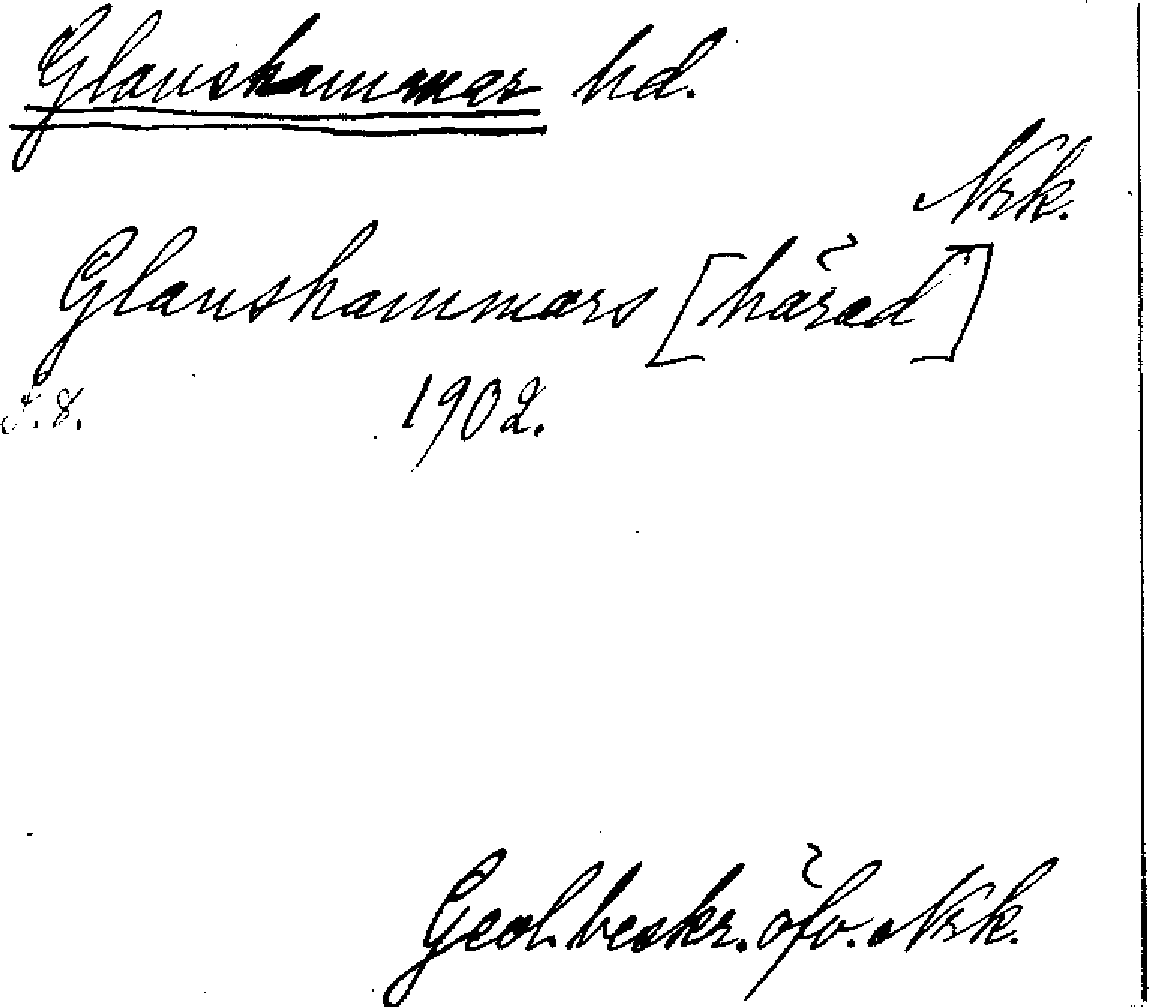 Glanshammar hd.
Nrk.
Glanshammars [härad]
S. 8. 1902.
Geol. beskr. öfv. Nrk.